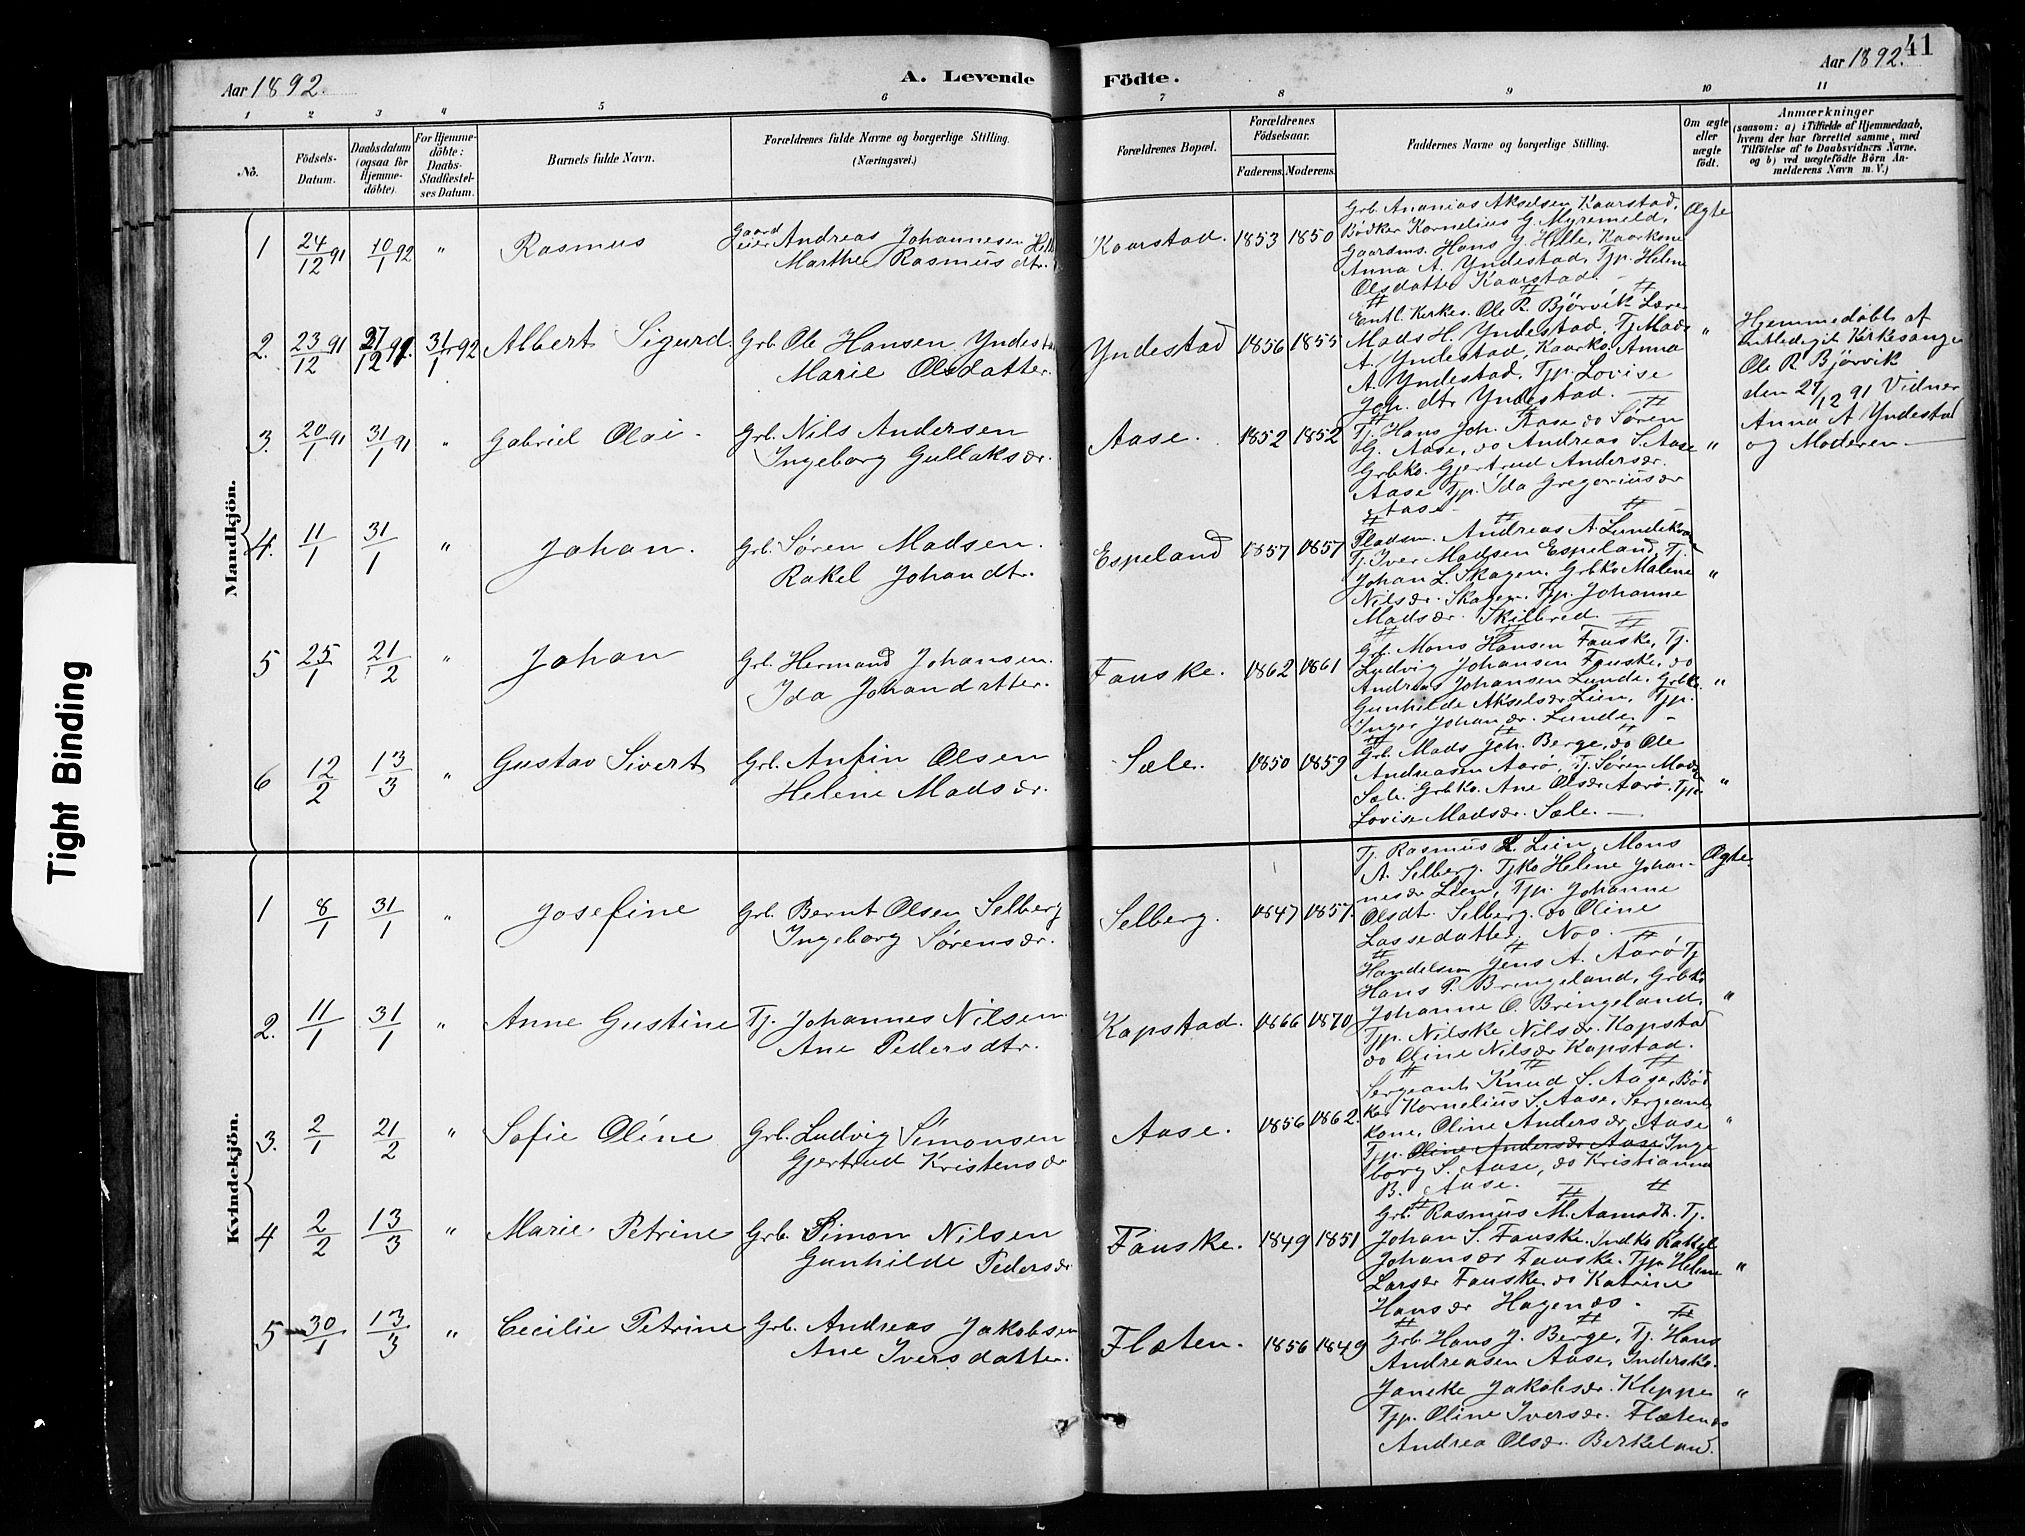 Aar 1892.
A. Levende Födte.
Aar 1892.
41
1 2 3 " 5 6 7 8 9 10 11
No.
Födsels-Datum.
Daabsdatum (ogsaa for Hjemmedöbte).
For Hjemmedöbte: Daabs-Stadfæstelses Datum.
Barnets fulde Navn.
Forældrenes fulde Navne og borgerlige Stilling.
(Næringsvei.)
Forældrenes Bopæl.
Forældrenes Födselsaar.
Faderens. Moderens.
Faddernes Navne og borgerlige Stilling.
Om ægte eller uægte födt.
Anmærkninger
(saasom: a) i Tilfælde af Hjemmedaab,
hvem der har forrettet samme, med
Tilföielse af to Daabsvidners Navne,
og b) ved uægtefödte Börn An-
melderens Navn m. V.)
Mandkjön.
1 24/12 91 10/1 92 " Rasmus
Gaardeier Andreas Johannesen
Marthe Rasmusdtr.
Kaarstad. 1853 1850
Grb. Ananias Akselsen Kaarstad,
Bødker Kornelius G. Myremeld,
Gaardms. Hans J. Hille, Kaarkone
Anna A. Yndestad, Tjp. Helene
Olsdatter Kaarstad.
Ægte
2. 23/12 91 27/12 91. 31/1 92 Albert Sigurd.
Grb. Ole Hansen Yndestad
Marie Olsdatter.
Yndestad 1856 1855
Entl. Kirkes. Ole R. Bjørvik Lære
Mads H. Yndestad, Tj. Mads
A. Yndestad, Kaarko. Anna
A. Yndestad, Tjp. Lovise
Joh. dtr Yndestad.
"
Hjemmedøbt af
entlediget Kirkesanger
Ole R Bjørvik
den 27/12 91 Vidner
Anna A Yndestad
og Moderen.
3. 20/1 91 31/1 91 " Gabriel Olai.
Grb. Nils Andersen
Ingeborg Gullaksdr.
Aase. 1852 1852
Tj. Hans Joh. Aase do Søren
G. Aase, do Andreas S. Aase
Grbko. Gjertrud Andersdr.
Aase Tjp. Ida Gregoriusdr
Aase
"
4. 11/1 31/1 " Johan.
Grb. Søren Madsen.
Rakel Johandtr.
Espeland 1857 1857
Pladsm. Andreas A. Lundekvam
Tj. Iver Madsen Espeland, Tj.
Johan L. Skagen, Grbko Malene
Nilsdr. Skagen, Tjp. Johanne
Madsdr. Skilbred.
"
5 25/1 21/2 " Johan
Grb. Hermand Johansen.
Ida Johandatter.
Fauske. 1862 1861
Grb. Mons Hansen Fauske, Tj.
Ludvig Johansen Fauske, do
Andreas Johansen Lunde, Grbk.
Gunhilde Akselsdr Lien, Tjp.
Inger Johandr. Lunde.
"
6 12/2 13/3 " Gustav Sivert
Grb. Anfin Olsen
Helene Madsdr.
Sæle. 1850 1859
Grb. Mads Joh. Berge, do Ole
Andreasen Aarø, Tj. Søren Mads
Sæle. Grbko. Ane Olsdr Aarø. Tjp
Lovise Madsdr. Sæle.
"
Kvindekjön.
1 8/1 31/1 " Josefine
Grb. Bernt Olsen Selberg
Ingeborg Sørensdr.
Selberg. 1847 1857.
Tj. Rasmus L. Lien, Mons
A. Selberg. Tjko Helene Johan-
nesdr Lien, Tjp. Johanne
Olsdt. Selberg. do Oline
Lassedatter. Noo.
Ægte.
2. 11/1 31/1 " Anne Gustine
Tj. Johannes Nilsen
Ane Pedersdtr.
Kapstad. 1866 1870
Handelsm Jens A. Aarø Tj
Hans P. Bringeland, Grbko
Johanne O. Bringeland,
Tjp. Nilske Nilsdr. Kapstad
do Oline Nilsdr Kapstad.
"
3. 2/1 21/2 " Sofie Oline
Grb. Ludvig Simonsen
Gjertrud Kristensdr
Aase. 1856 1862.
Sergeant Knud S. Aase, Bød
ker Kornelius S. Aase, Sergeant
kone, Oline Andersdr Aase
Tjp. Oline Andersdr Aase Inge
borg S. Aase, do Kristianna
B. Aase.
"
4 2/2 13/3 " Marie Petrine
Grb. Simon Nilsen
Gunhilde Pedersdr
Fauske. 1849 1851
Grb. Rasmus M. Aamodt. Tj.
Johan S. Fauske. Indko Rakel
Johansdr Fauske. Tjp. Helene
Larsdr Fauske do Katrine
Hansdr Hagenæs.
"
5 30/1 13/3 " Cecilie Petrine
Grb. Andreas Jakobsen
Ane Iversdatter.
Flæten. 1856 1849
Grb. Hans J. Berge, Tj. Hans
Andreasen Aase, Indersko.
Janeke Jakobsdr. Kleppe
Tjp. Oline Iversdr. Flæten do
Andrea Olsdr. Berkeland.
"
Tight Binding